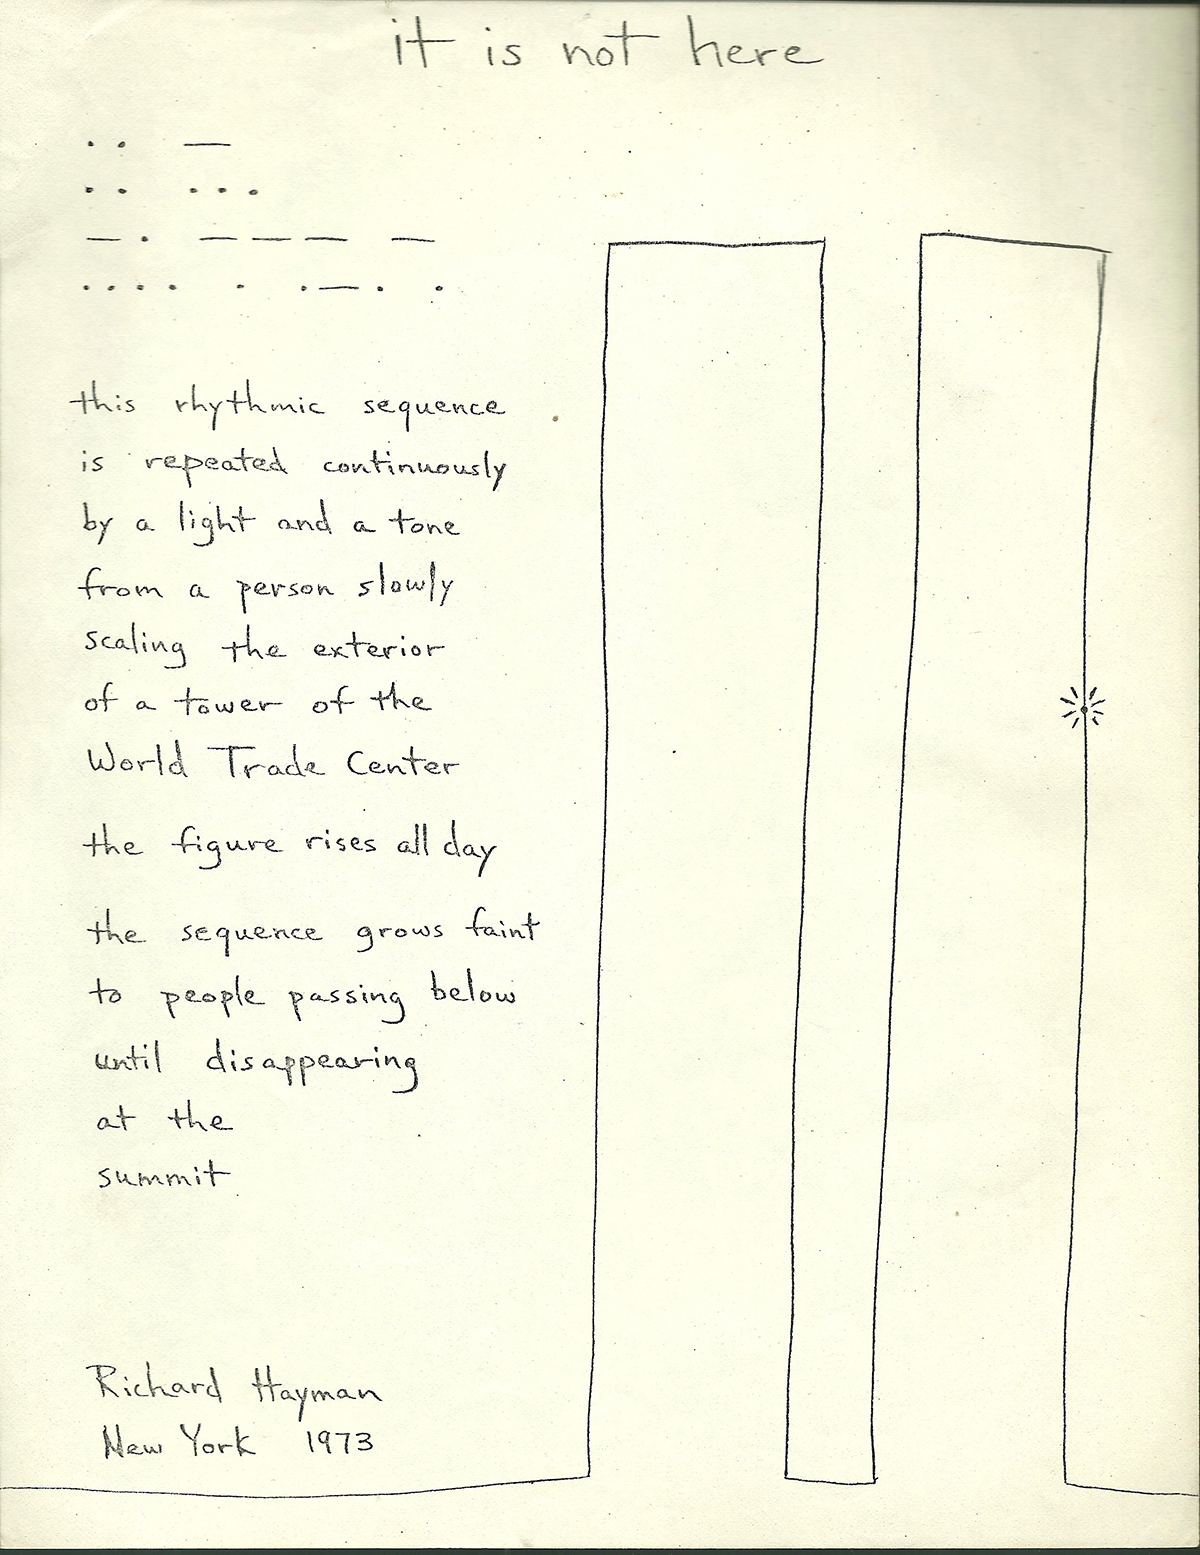 it is not here
·· —
·· ···
—· — — — —
···· · ·—· ·
this rhythmic sequence
is repeated continuously
by a light and a tone
from a person slowly
scaling the exterior
of a tower of the
World Trade Center
the figure rises all day
the sequence grows faint
to people passing below
until disappearing
at the
summit
Richard Hayman
New York 1973